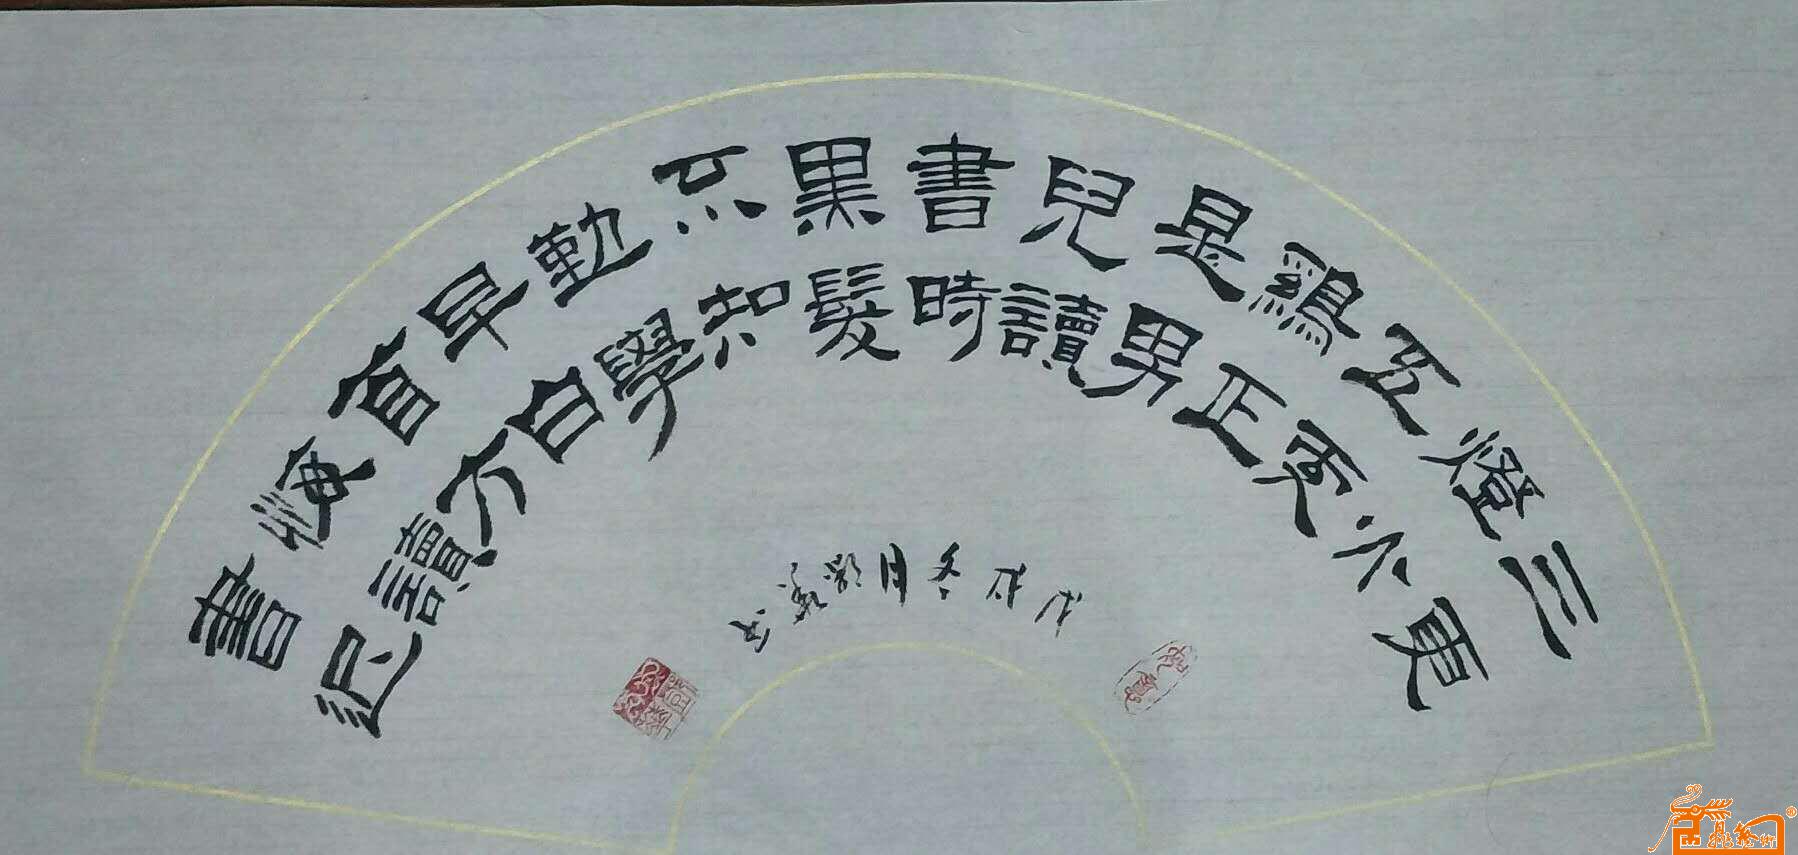 三更
燈火
五更
鷄正
是男
兒讀
書時
黑髮
不知
勤學
早白
首方
悔讀
書迟
戊戌冬月
书